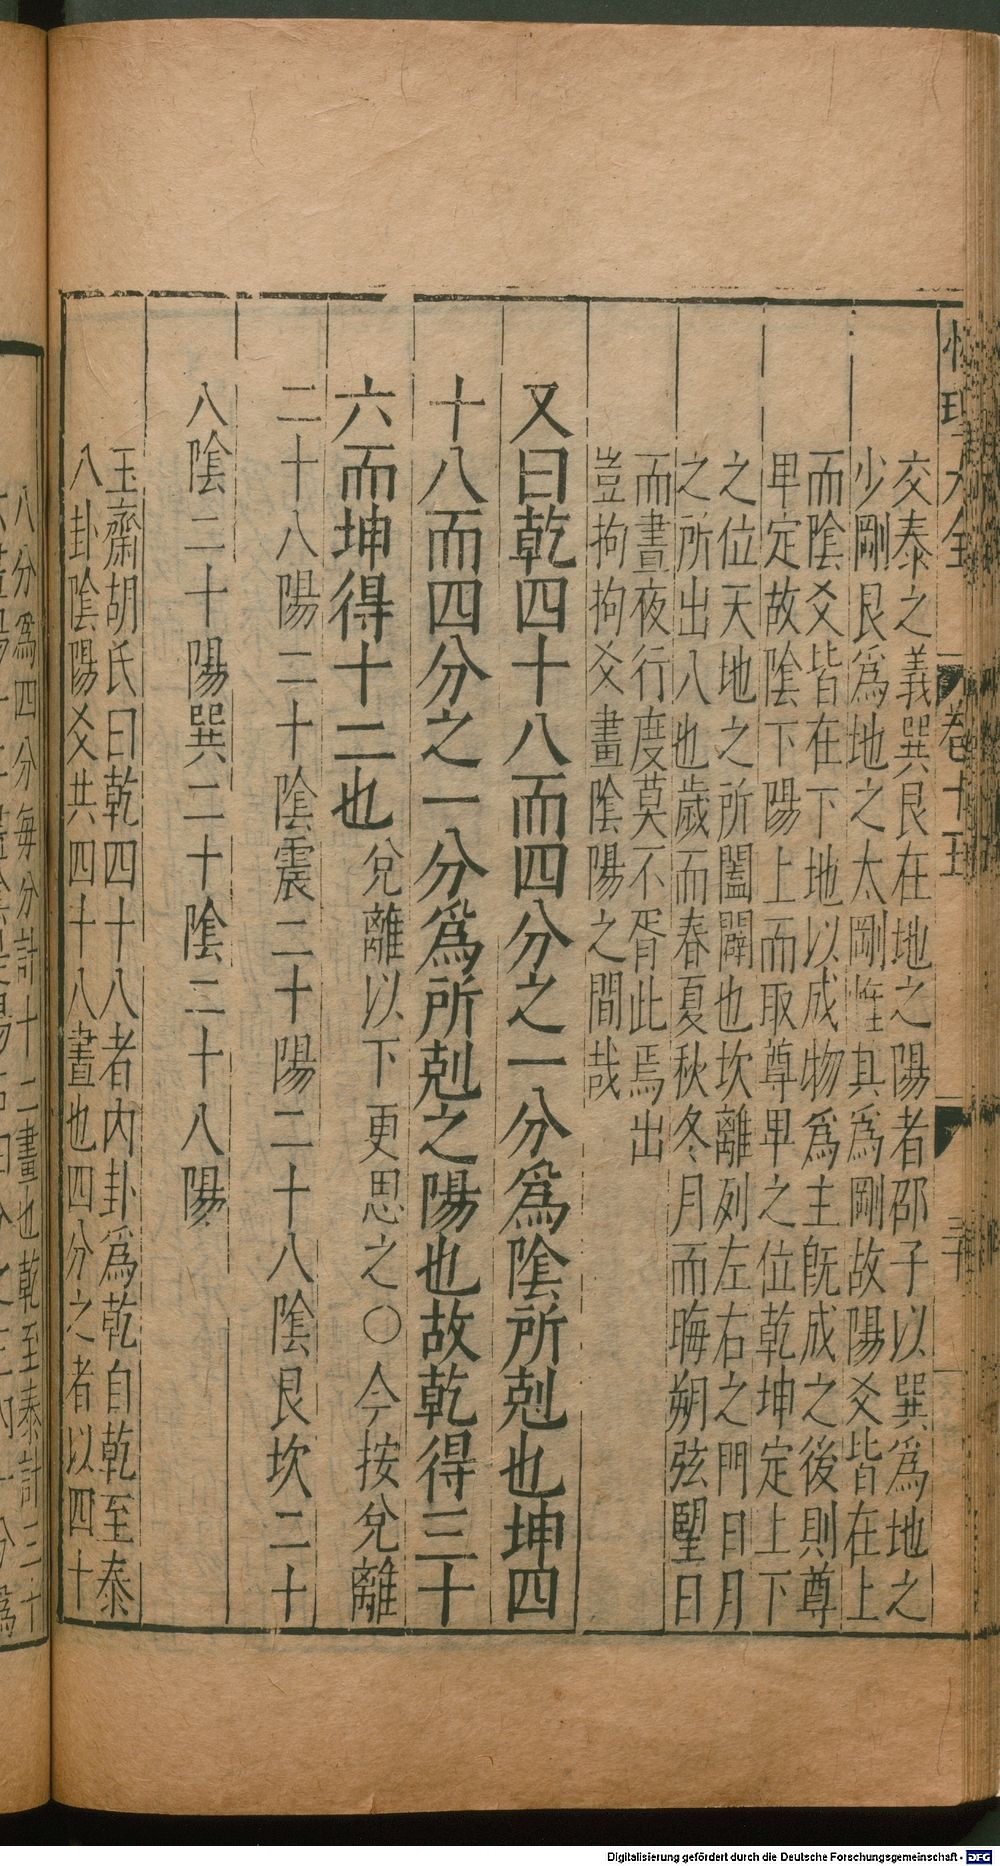 性理大全
卷十五
交泰之義巽艮在地之陽者邵子以巽為地之
少剛艮為地之太剛惟其為剛故陽爻皆在上
而陰爻皆在下地以成物為主旣成之後則尊
卑定故陰下陽上而取尊卑之位乾坤定上下
之位天地之所闔闢也坎離列左右之門日月
之所出入也歲而春夏秋冬月而晦朔弦望日
而晝夜行度莫不胥此焉出
豈拘拘爻畫陰陽之間哉
又曰乾四十八而四分之一分爲陰所剋也坤四
十八而四分之一分爲所剋之陽也故乾得三十
六而坤得十二也兌離以下更思之○今按兌離
二十八陽二十陰震二十陽二十八陰艮坎二十
八陰二十陽巽二十陰二十八陽
玉齋胡氏曰乾四十八者內卦爲乾自乾至泰
八卦陰陽爻共四十八畫也四分之者以四十
八分爲四分每分計十二畫也乾至泰計三十